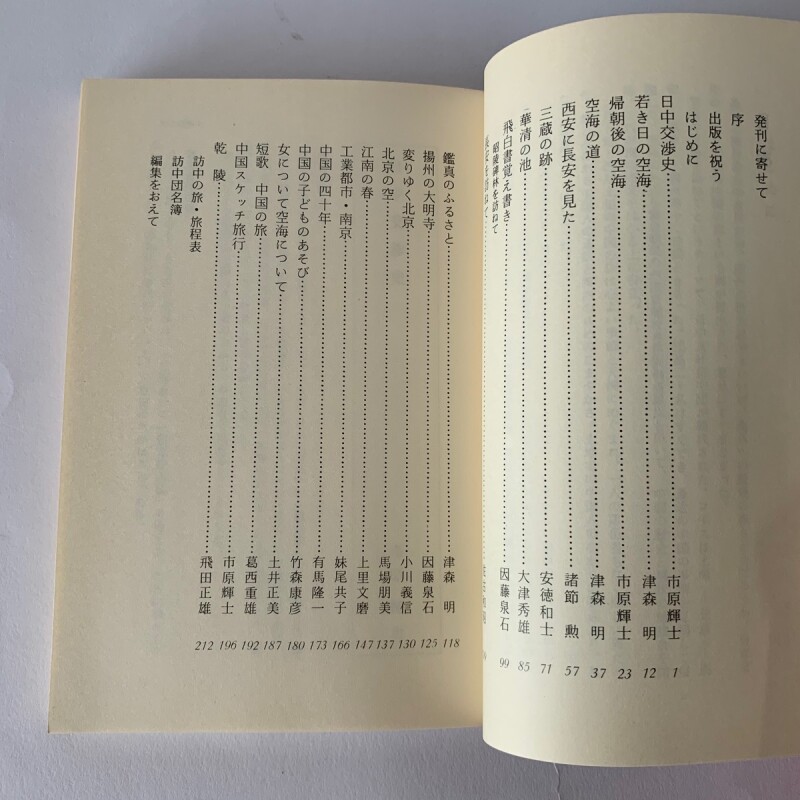 発刊に寄せて
序
出版を祝う
はじめに
日中交渉史 市原輝士 1
若き日の空海 津森 明 12
帰朝後の空海 市原輝士 23
空海の道 津森 明 37
西安に長安を見た 諸節 勲 57
三蔵の跡 安徳和士 71
華清の池 大津秀雄 85
飛白書覚え書き 因藤泉石 99
昭陵碑林を訪ねて
鑑真のふるさと 津森 明 118
揚州の大明寺 因藤泉石 125
変りゆく北京 小川義信 130
北京の空 馬場朋美 137
江南の春 上里文磨 147
工業都市・南京 妹尾共子 166
中国の四十年 有馬隆一 173
中国の子どものあそび 竹森康彦 180
女について空海について 土井正美 187
短歌 中国の旅 葛西重雄 192
中国スケッチ旅行 市原輝士 196
乾 陵 飛田正雄 212
訪中の旅・旅程表
訪中団名簿
編集をおえて